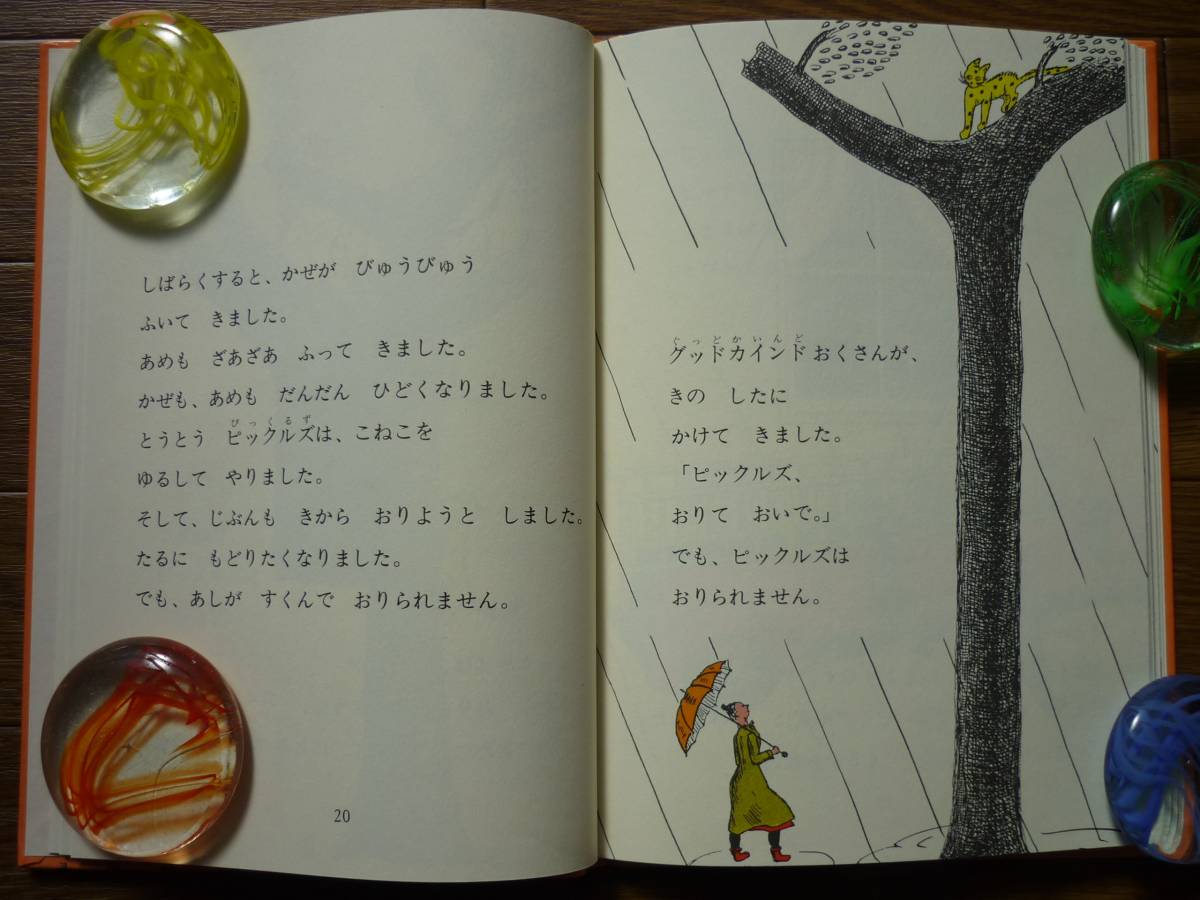 しばらくすると、かぜが　びゅうびゅう
ふいて　きました。
あめも　ざあざあ　ふって　きました。
かぜも、あめも　だんだん　ひどくなりました。
ぴっくるず
とうとう　ピックルズは、こねこを
ゆるして　やりました。
そして、じぶんも　きから　おりようと　しました。
たるに　もどりたくなりました。
でも、あしが　すくんで　おりられません。
20
ぐっどかいんど
グッドカインドおくさんが、
きの　したに
かけて　きました。
「ピックルズ、
おりて　おいで。」
でも、ピックルズは
おりられません。